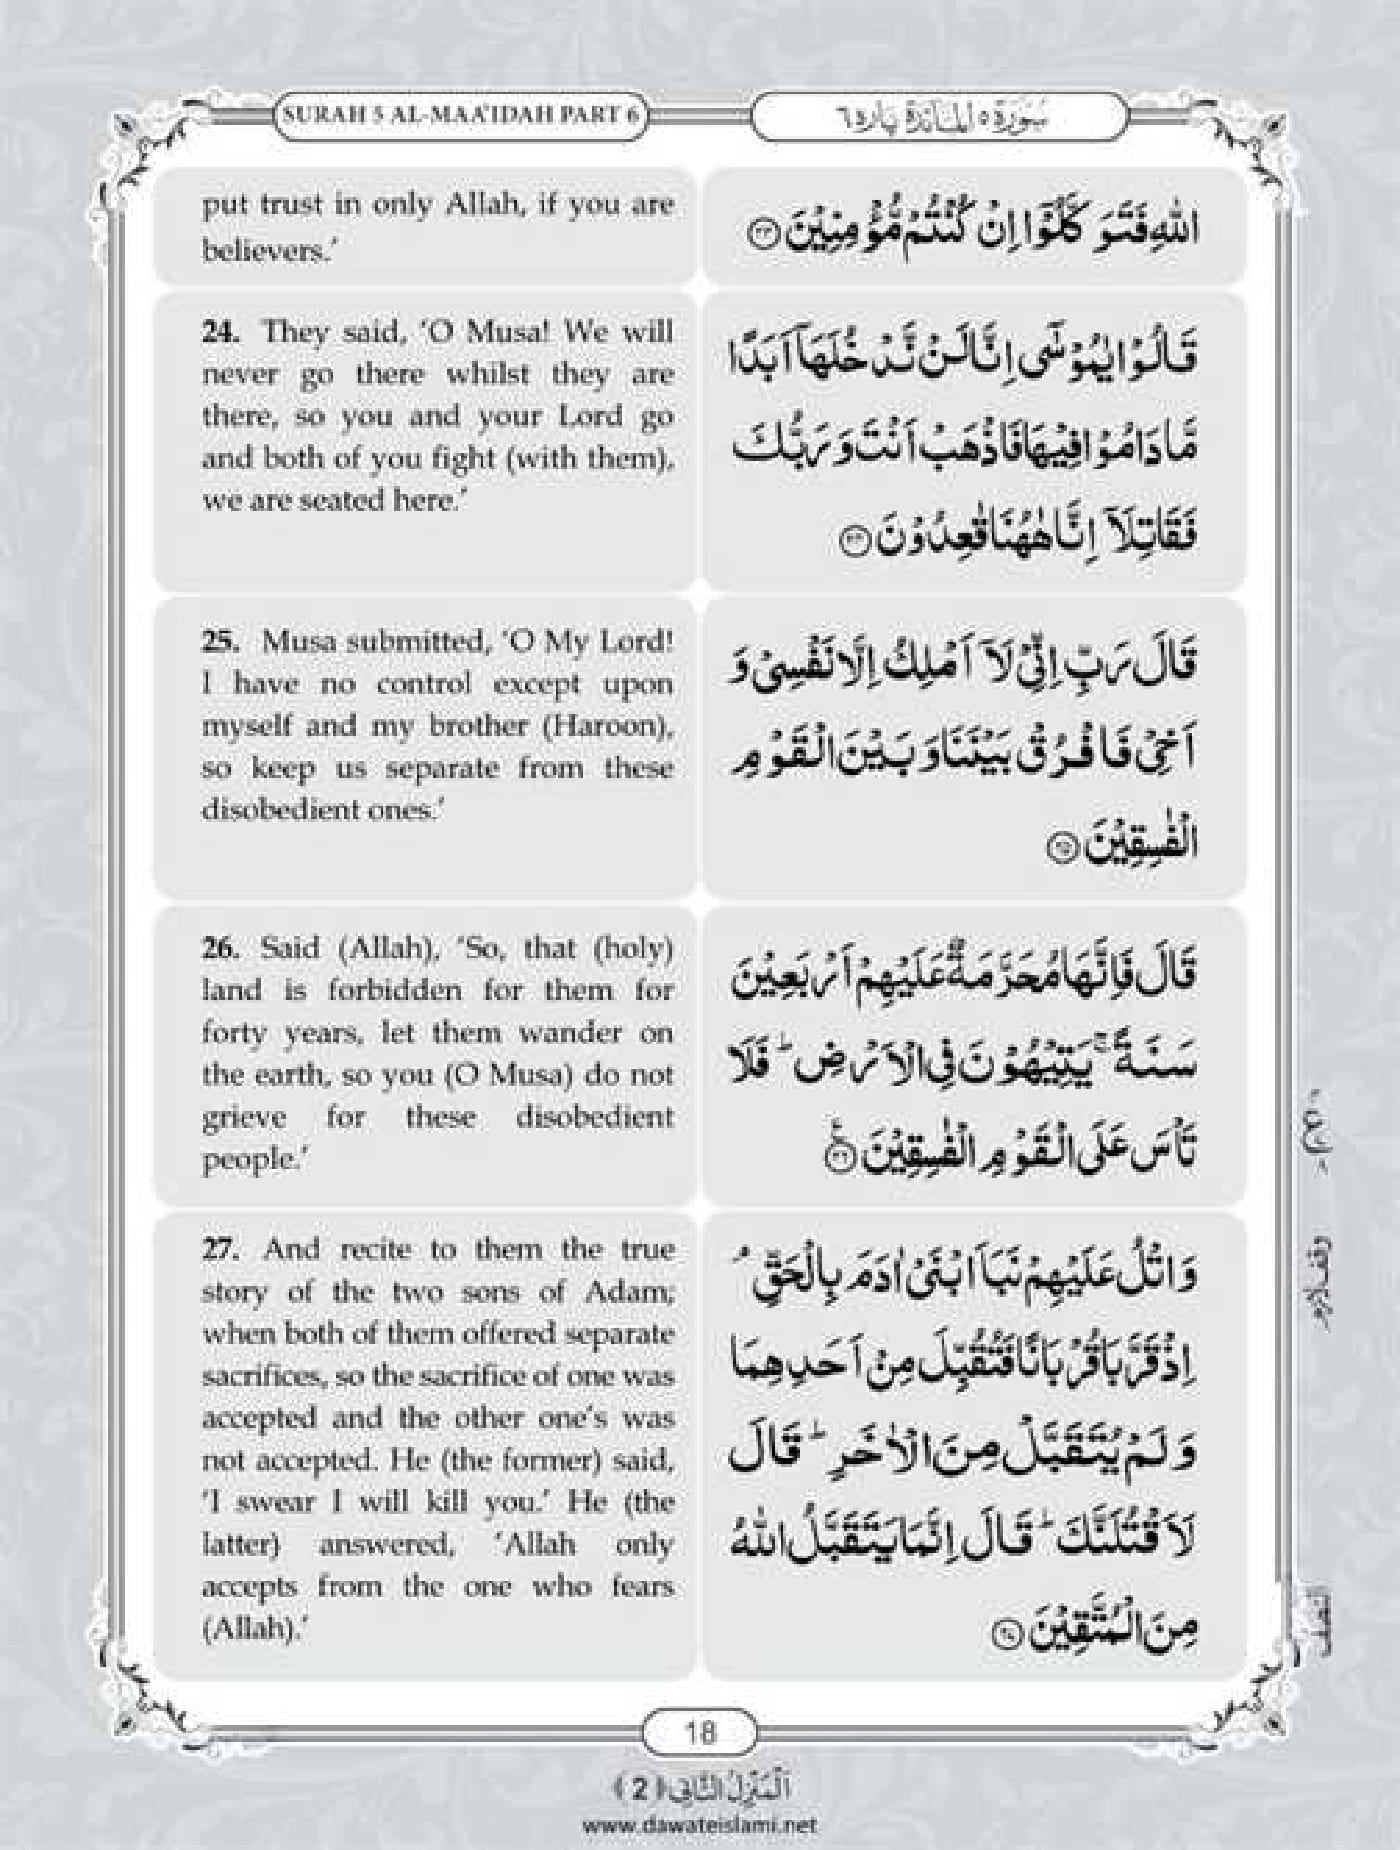 SURAH 5 AL-MAA'IDAH PART 6
سُوۡرَةُ ٥ المَآئِدَة پارہ ٦
put trust in only Allah, if you are
believers.’
اللّٰهِ فَتَوَكَّلُوْۤا اِنْ كُنْتُمْ مُّؤْمِنِیْنَ ﴿۲۳﴾
24. They said, ‘O Musa! We will
never go there whilst they are
there, so you and your Lord go
and both of you fight (with them),
we are seated here.’
قَالُوْا یٰمُوْسٰۤى اِنَّا لَنْ نَّدْخُلَهَاۤ اَبَدًا
مَّا دَامُوْا فِیْهَا فَاذْهَبْ اَنْتَ وَ رَبُّكَ
فَقَاتِلَاۤ اِنَّا هٰهُنَا قٰعِدُوْنَ ﴿۲۴﴾
25. Musa submitted, ‘O My Lord!
I have no control except upon
myself and my brother (Haroon),
so keep us separate from these
disobedient ones.’
قَالَ رَبِّ اِنِّیْ لَاۤ اَمْلِكُ اِلَّا نَفْسِیْ وَ
اَخِیْ فَافْرُقْ بَیْنَنَا وَ بَیْنَ الْقَوْمِ
الْفٰسِقِیْنَ ﴿۲۵﴾
26. Said (Allah), ‘So, that (holy)
land is forbidden for them for
forty years, let them wander on
the earth, so you (O Musa) do not
grieve for these disobedient
people.’
قَالَ فَاِنَّهَا مُحَرَّمَةٌ عَلَیْهِمْ اَرْبَعِیْنَ
سَنَةً ۚ یَتِیْهُوْنَ فِی الْاَرْضِ ؕ فَلَا
تَاْسَ عَلَى الْقَوْمِ الْفٰسِقِیْنَ ﴿۲۶﴾
27. And recite to them the true
story of the two sons of Adam;
when both of them offered separate
sacrifices, so the sacrifice of one was
accepted and the other one’s was
not accepted. He (the former) said,
‘I swear I will kill you.’ He (the
latter) answered, ‘Allah only
accepts from the one who fears
(Allah).’
وَ اتْلُ عَلَیْهِمْ نَبَاَ ابْنَیْ اٰدَمَ بِالْحَقِّ ۘ
اِذْ قَرَّبَا قُرْبَانًا فَتُقُبِّلَ مِنْ اَحَدِهِمَا
وَ لَمْ یُتَقَبَّلْ مِنَ الْاٰخَرِ ؕ قَالَ
لَاَقْتُلَنَّكَ ؕ قَالَ اِنَّمَا یَتَقَبَّلُ اللّٰهُ
مِنَ الْمُتَّقِیْنَ ﴿۲۷﴾
وقف لازم
النصف
18
اَلْمَنْزِلُ الثَّانِی ﴿2﴾
www.dawateislami.net